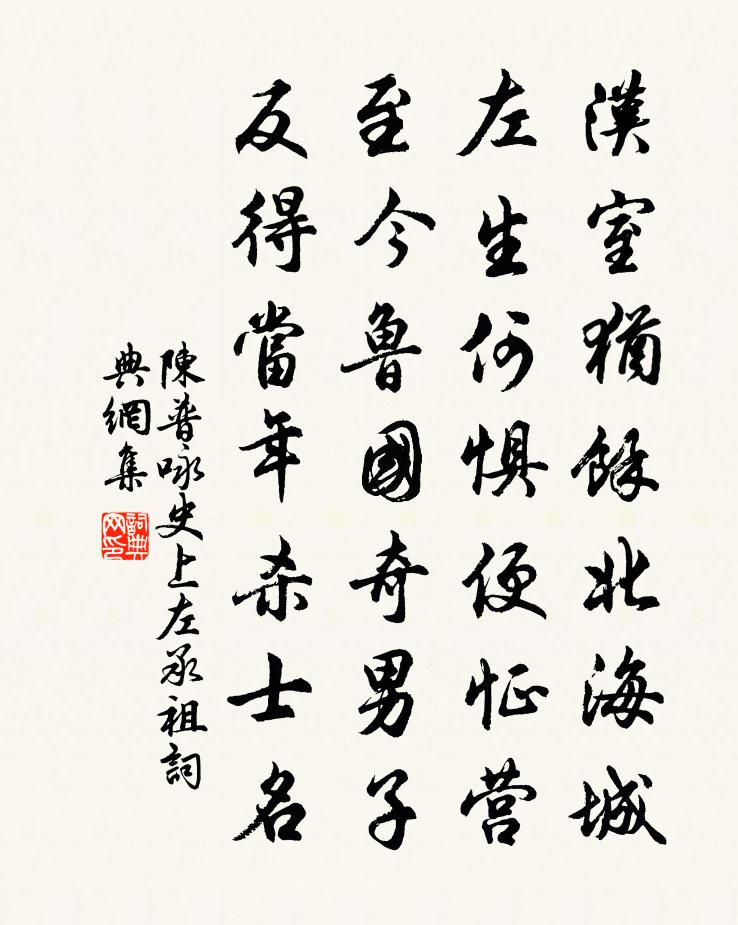 漢室猶餘北海城
左生何惧便怔营
至今魯國奇男子
反得當年杀士名
陳普咏史上左承祖詞
典網集
詞典
网印